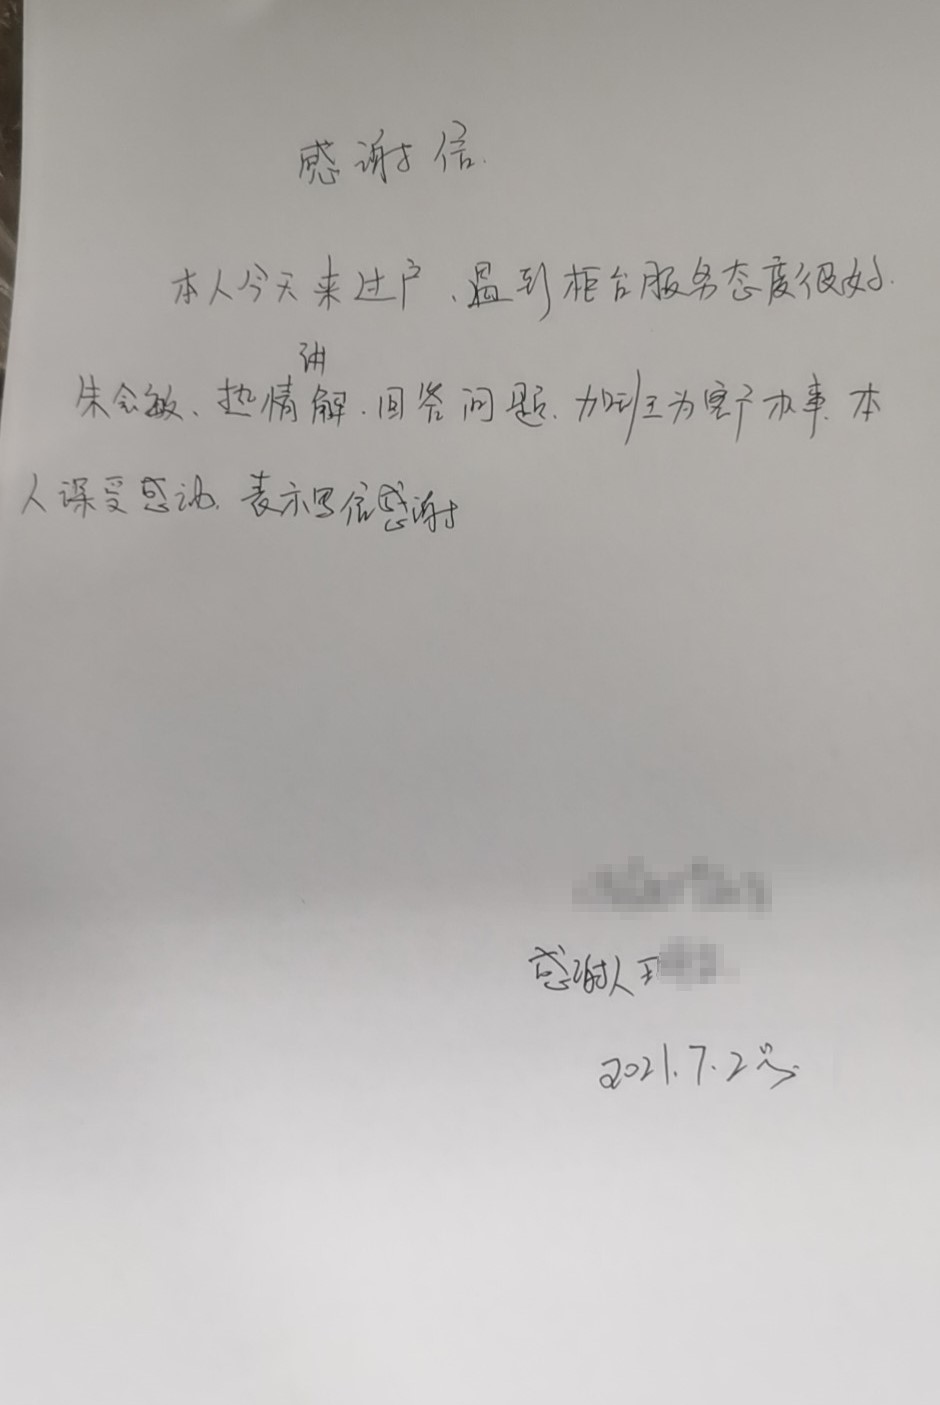 感谢信.
本人今天来过户、遇到柜台服务态度很好.
朱会敏、热情讲解.回答问题.加班为客户办事.本
人深受感动.表示写信感谢
感谢人王
2021.7.2号